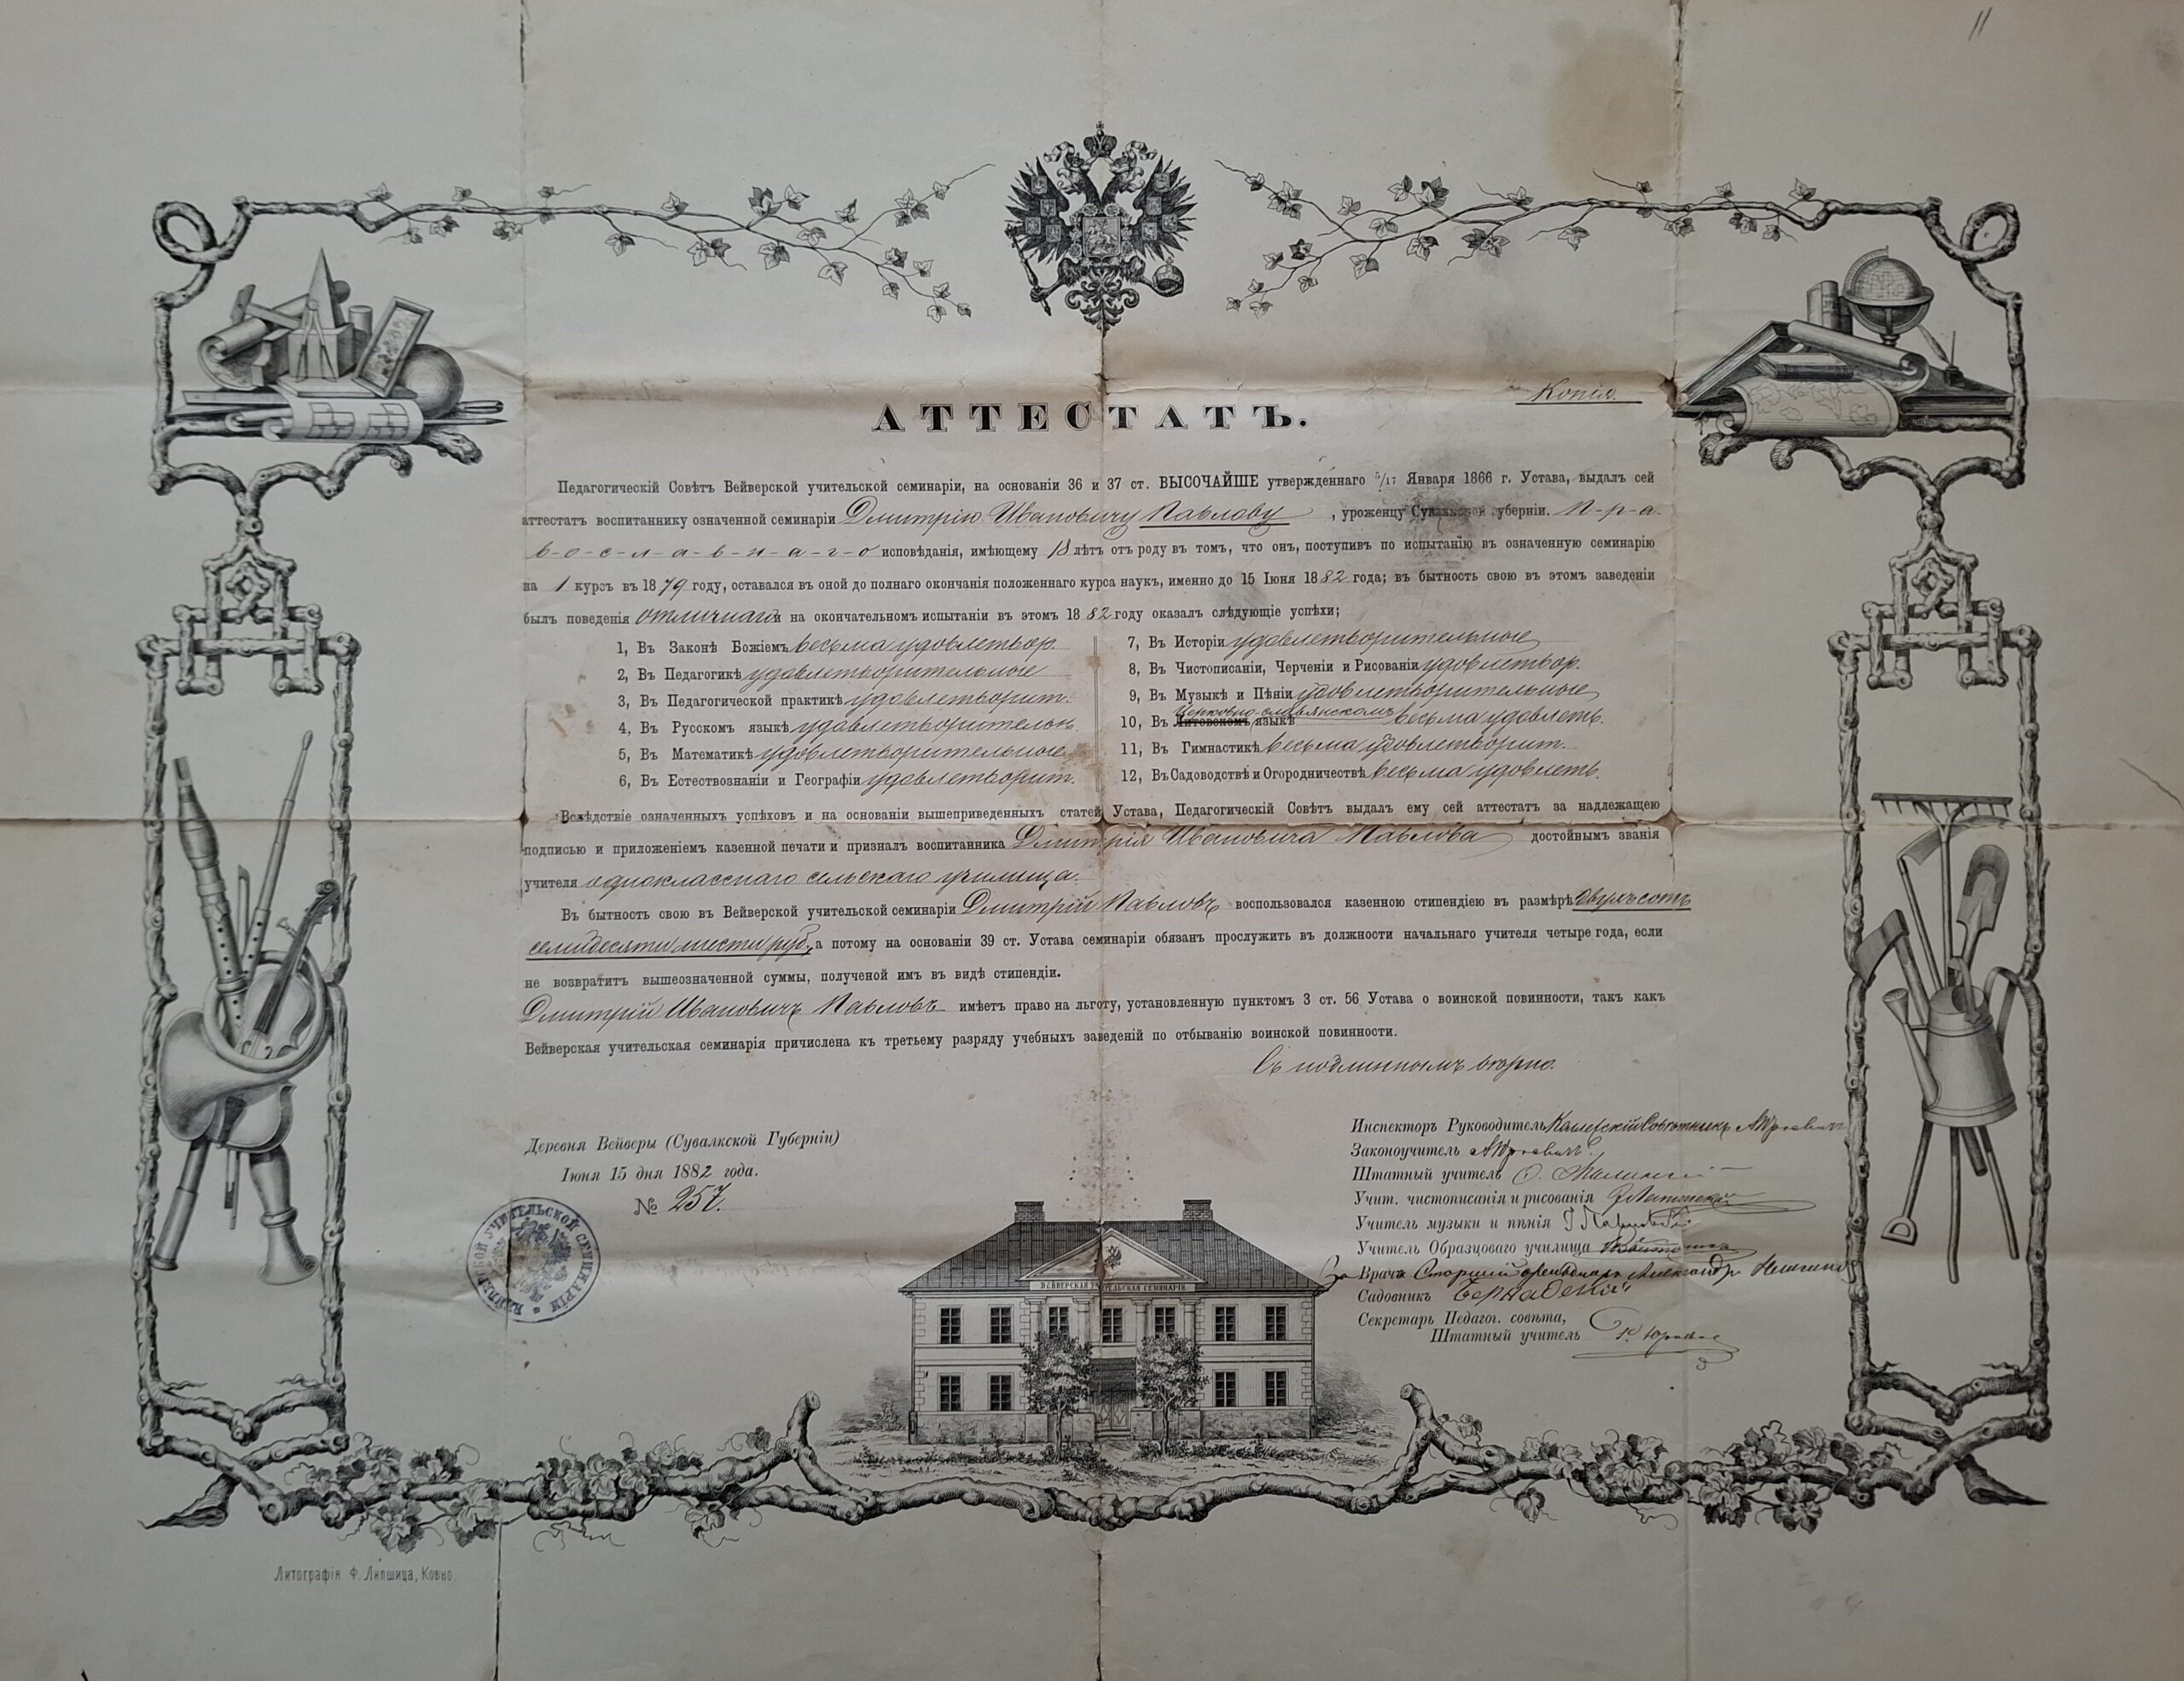 11
Копія.
АТТЕСТАТЪ.
Педагогическій Совѣтъ Вейверской учительской семинаріи, на основаніи 36 и 37 ст. ВЫСОЧАЙШЕ утвержденнаго 5/17 Января 1866 г. Устава, выдалъ сей
аттестатъ воспитаннику означенной семинаріи Дмитрію Ивановичу Павлову, уроженцу Сувалкской губерніи. П-р-а-
в-о-с-л-а-в-н-а-г-о исповѣданія, имѣющему 18 лѣтъ отъ роду въ томъ, что онъ, поступивъ по испытанію въ означенную семинарію
на 1 курсъ въ 1879 году, оставался въ оной до полнаго окончанія положеннаго курса наукъ, именно до 15 Іюня 1882 года; въ бытность свою въ этомъ заведеніи
былъ поведенія отличнаго и на окончательномъ испытаніи въ этомъ 1882 году оказалъ слѣдующіе успѣхи;
1, Въ Законѣ Божіемъ весьма удовлетвор.
2, Въ Педагогикѣ удовлетворительные
3, Въ Педагогической практикѣ удовлетворит.
4, Въ Русскомъ языкѣ удовлетворительн.
5, Въ Математикѣ удовлетворительные
6, Въ Естествознаніи и Географіи удовлетворит.
7, Въ Исторіи удовлетворительные
8, Въ Чистописаніи, Черченіи и Рисованіи удовлетвор.
9, Въ Музыкѣ и Пѣніи удовлетворительные
Церковно-славянскомъ
10, Въ Литовскомъ языкѣ весьма удовлетв.
11, Въ Гимнастикѣ весьма удовлетворит.
12, Въ Садоводствѣ и Огородничествѣ весьма удовлетв.
Вслѣдствіе означенныхъ успѣховъ и на основаніи вышеприведенныхъ статей Устава, Педагогическій Совѣтъ выдалъ ему сей аттестатъ за надлежащею
подписью и приложеніемъ казенной печати и призналъ воспитанника Дмитрія Ивановича Павлова достойнымъ званія
учителя одноклассного сельскаго училища.
Въ бытность свою въ Вейверской учительской семинаріи Дмитрій Павловъ воспользовался казенною стипендіею въ размѣрѣ двухъсотъ
семидесяти шести руб., а потому на основаніи 39 ст. Устава семинаріи обязанъ прослужить въ должности начальнаго учителя четыре года, если
не возвратитъ вышеозначенной суммы, полученой имъ въ видѣ стипендіи.
Дмитрій Ивановичъ Павловъ имѣетъ право на льготу, установленную пунктомъ 3 ст. 56 Устава о воинской повинности, такъ какъ
Вейверская учительская семинарія причислена къ третьему разряду учебныхъ заведеній по отбыванію воинской повинности.
Съ подлиннымъ вѣрно.
Деревня Вейверы (Сувалкской Губерніи)
Іюня 15 дня 1882 года.
№ 257.
ВЕЙВЕРСКОЙ УЧИТЕЛЬСКОЙ СЕМИНАРІИ
Инспекторъ Руководитель Коллежскій Совѣтникъ
Законоучитель
Штатный учитель
Учит. чистописанія и рисованія
Учитель музыки и пѣнія
Учитель Образцоваго училища
За Врача Старшій Александръ
Садовникъ
Секретарь Педагог. совѣта,
Штатный учитель
ВЕЙВЕРСКАЯ УЧИТЕЛЬСКАЯ СЕМИНАРІЯ.
Литографія Ф. Липшица, Ковно.